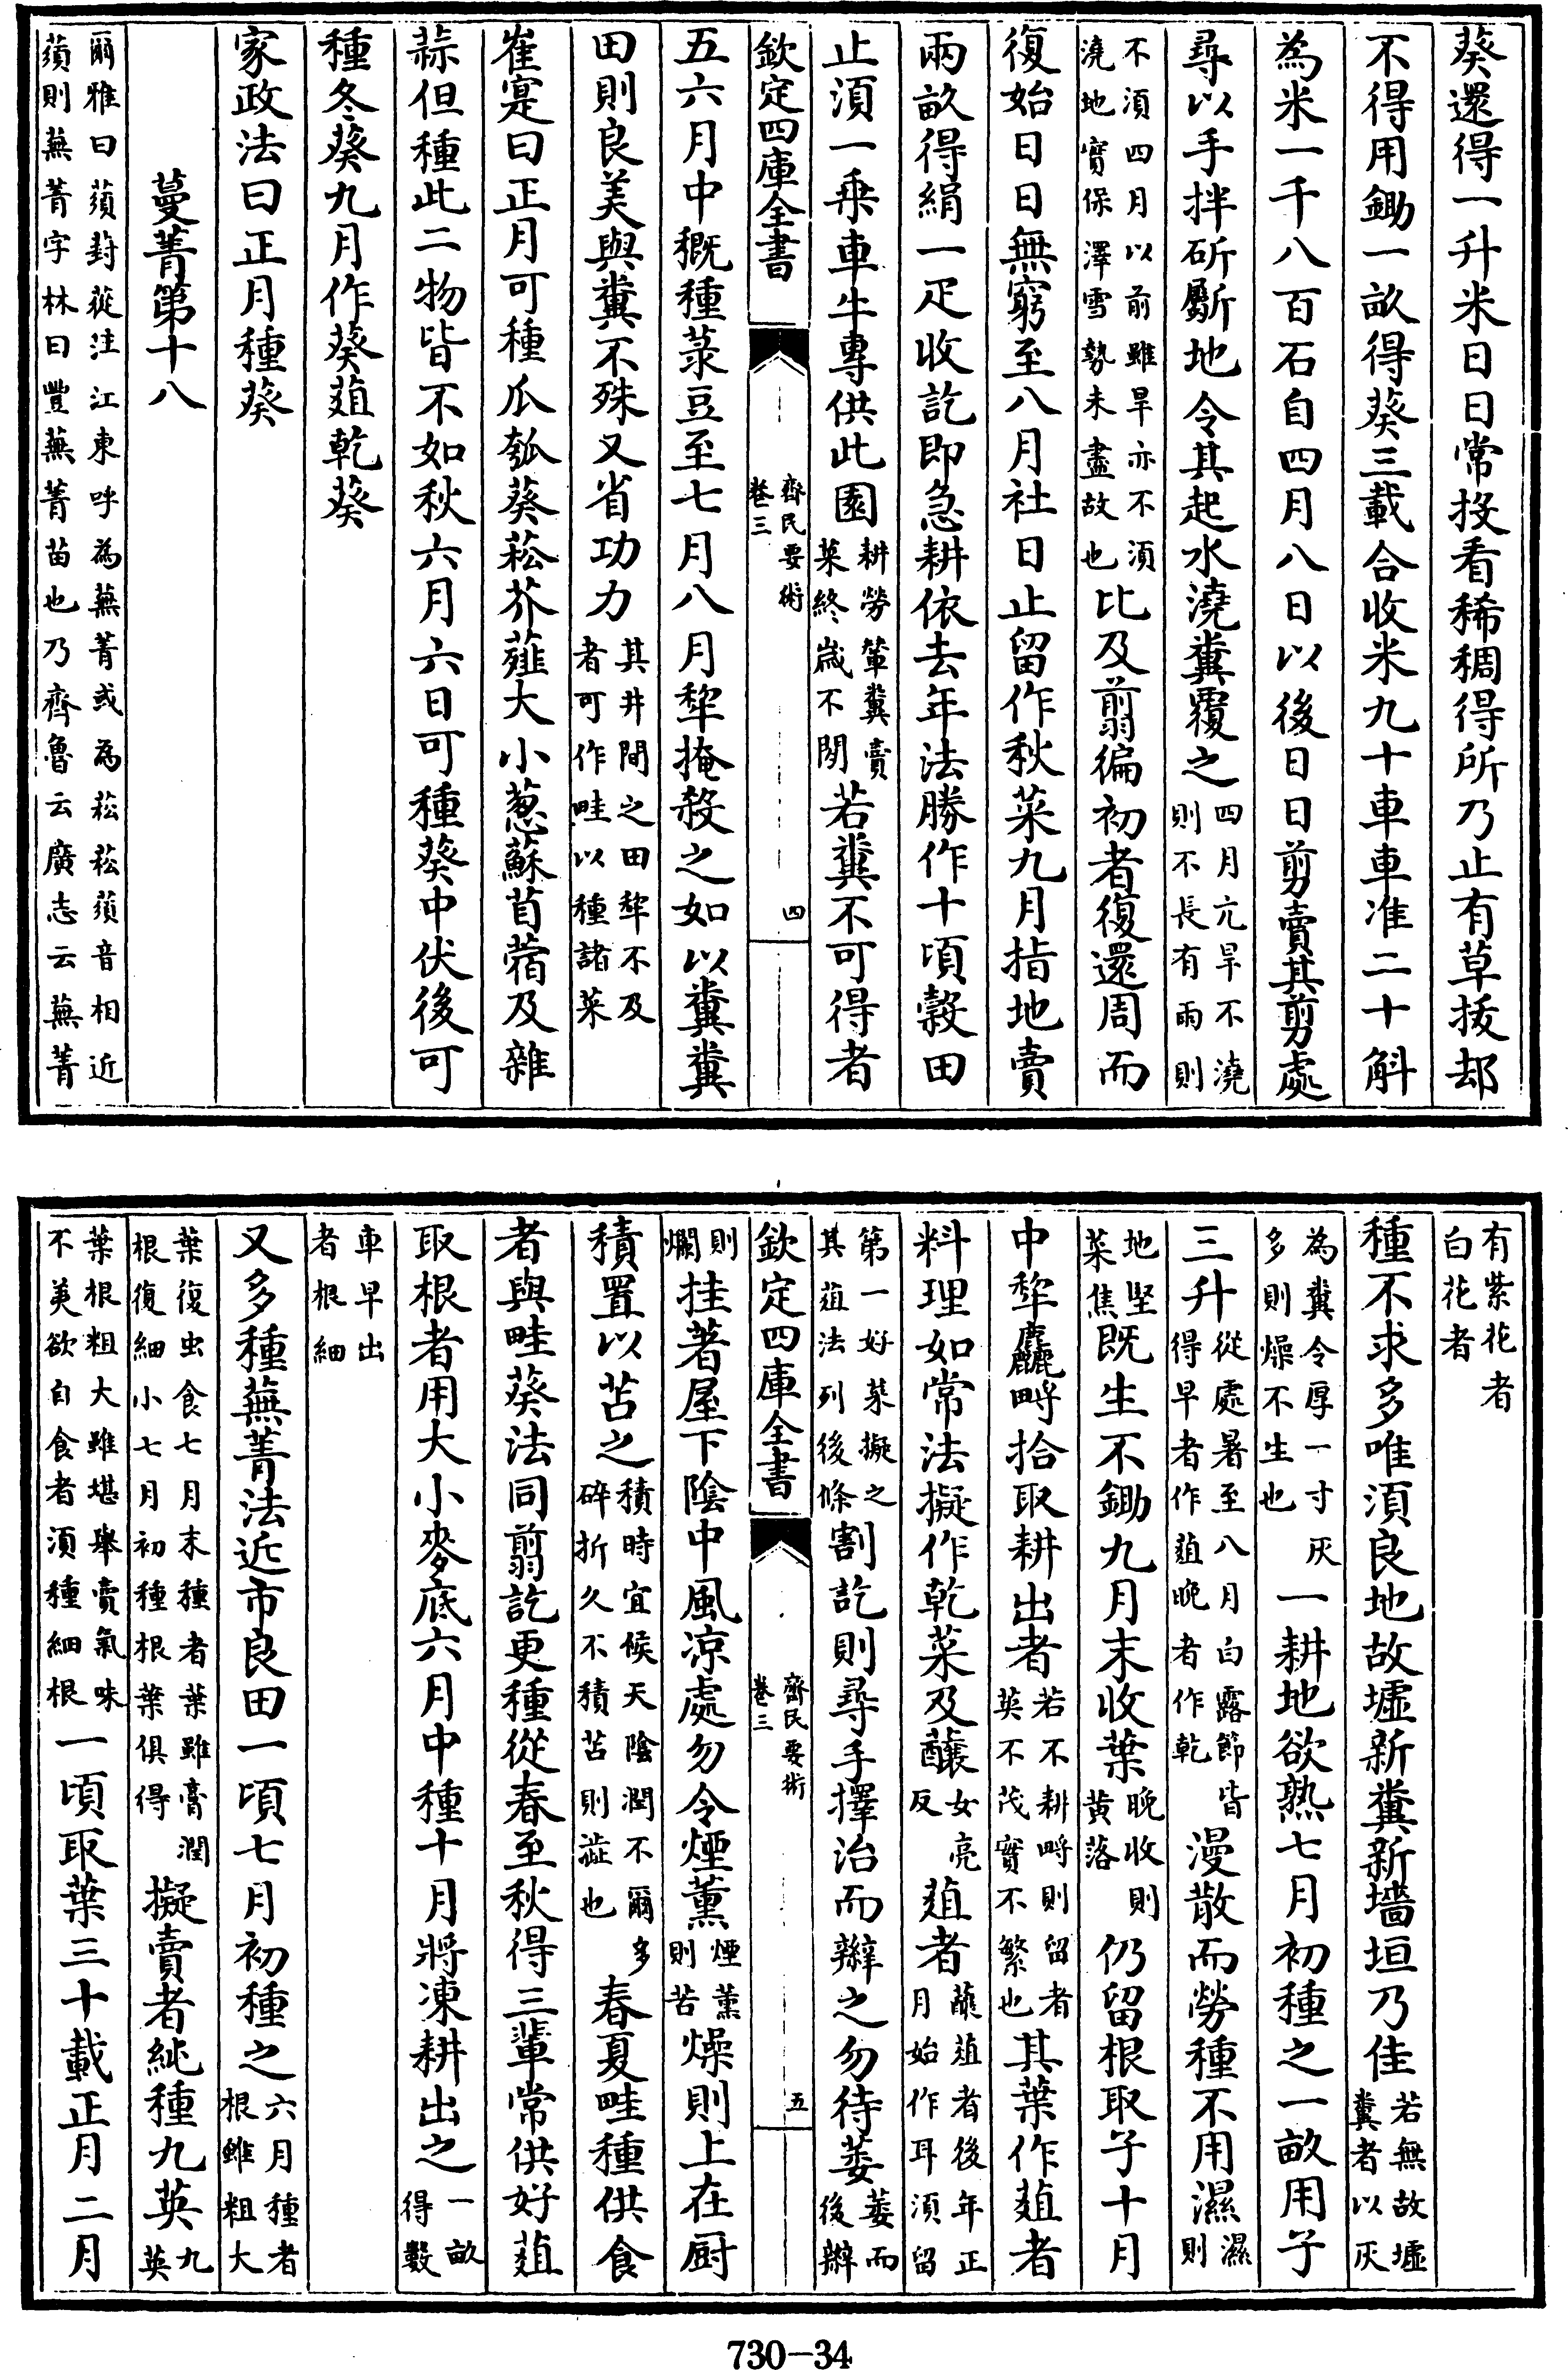 葵還得一升米日日常投看稀稠得所乃止有草拔却
不得用鋤一畝得葵三載合收米九十車車准二十斛
為米一千八百石自四月八日以後日日剪賣其剪處
尋以手拌斫斸地令其起水澆糞覆之四月亢旱不澆則不長有雨則
不須四月以前雖旱亦不須澆地實保澤雪勢未盡故也比及剪徧初者復還周而
復始日日無窮至八月社日止留作秋菜九月指地賣
兩畝得絹一疋收訖即急耕依去年法勝作十頃榖田
止須一乗車牛專供此園耕勞輦糞賣菜終歲不閑若糞不可得者
欽定四庫全書 齊民要術 卷三 四
五六月中穊種菉豆至七月八月犂掩殺之如以糞糞
田則良美與糞不殊又省功力其井間之田犂不及者可作畦以種諸菜
崔寔曰正月可種瓜瓠葵菘芥薤大小葱蘇苜蓿及雜
蒜但種此二物皆不如秋六月六日可種葵中伏後可
種冬葵九月作葵葅乾葵
家政法曰正月種葵
蔓菁第十八
爾雅曰蕦葑蓯注江東呼為蕪菁或為菘菘蕦音相近蕦則蕪菁字林曰豐蕪菁苗也乃齊魯云廣志云蕪菁
有紫花者白花者
種不求多唯須良地故墟新糞新墻垣乃佳若無故墟糞者以灰
為糞令厚一寸灰多則燥不生也一耕地欲熟七月初種之一畝用子
三升從處暑至八月白露節皆得早者作葅晚者作乾漫散而勞種不用濕濕則
地堅菜焦既生不鋤九月末收葉晚收則黄落仍留根取子十月
中犂麤畤拾取耕出者若不耕畤則留者英不茂實不繁也其葉作葅者
料理如常法擬作乾菜及釀女亮反葅者釀葅者後年正月始作耳須留
第一好菜擬之其葅法列後條割訖則尋手擇治而辮之勿待萎萎而後辮
欽定四庫全書 齊民要術 卷三 五
則爛挂著屋下陰中風凉處勿令煙薰煙薰則苦燥則上在厨
積置以苫之積時宜候天陰潤不爾多碎折久不積苫則澁也春夏畦種供食
者與畦葵法同剪訖更種從春至秋得三輩常供好葅
取根者用大小麥底六月中種十月將凍耕出之一畝得數
車早出者根細
又多種蕪菁法近市良田一頃七月初種之六月種者根雖粗大
葉復虫食七月末種者葉雖膏潤根復細小七月初種根葉俱得擬賣者純種九英九英
葉根粗大雖堪舉賣氣味不美欲自食者須種細根一頃取葉三十載正月二月
730-34